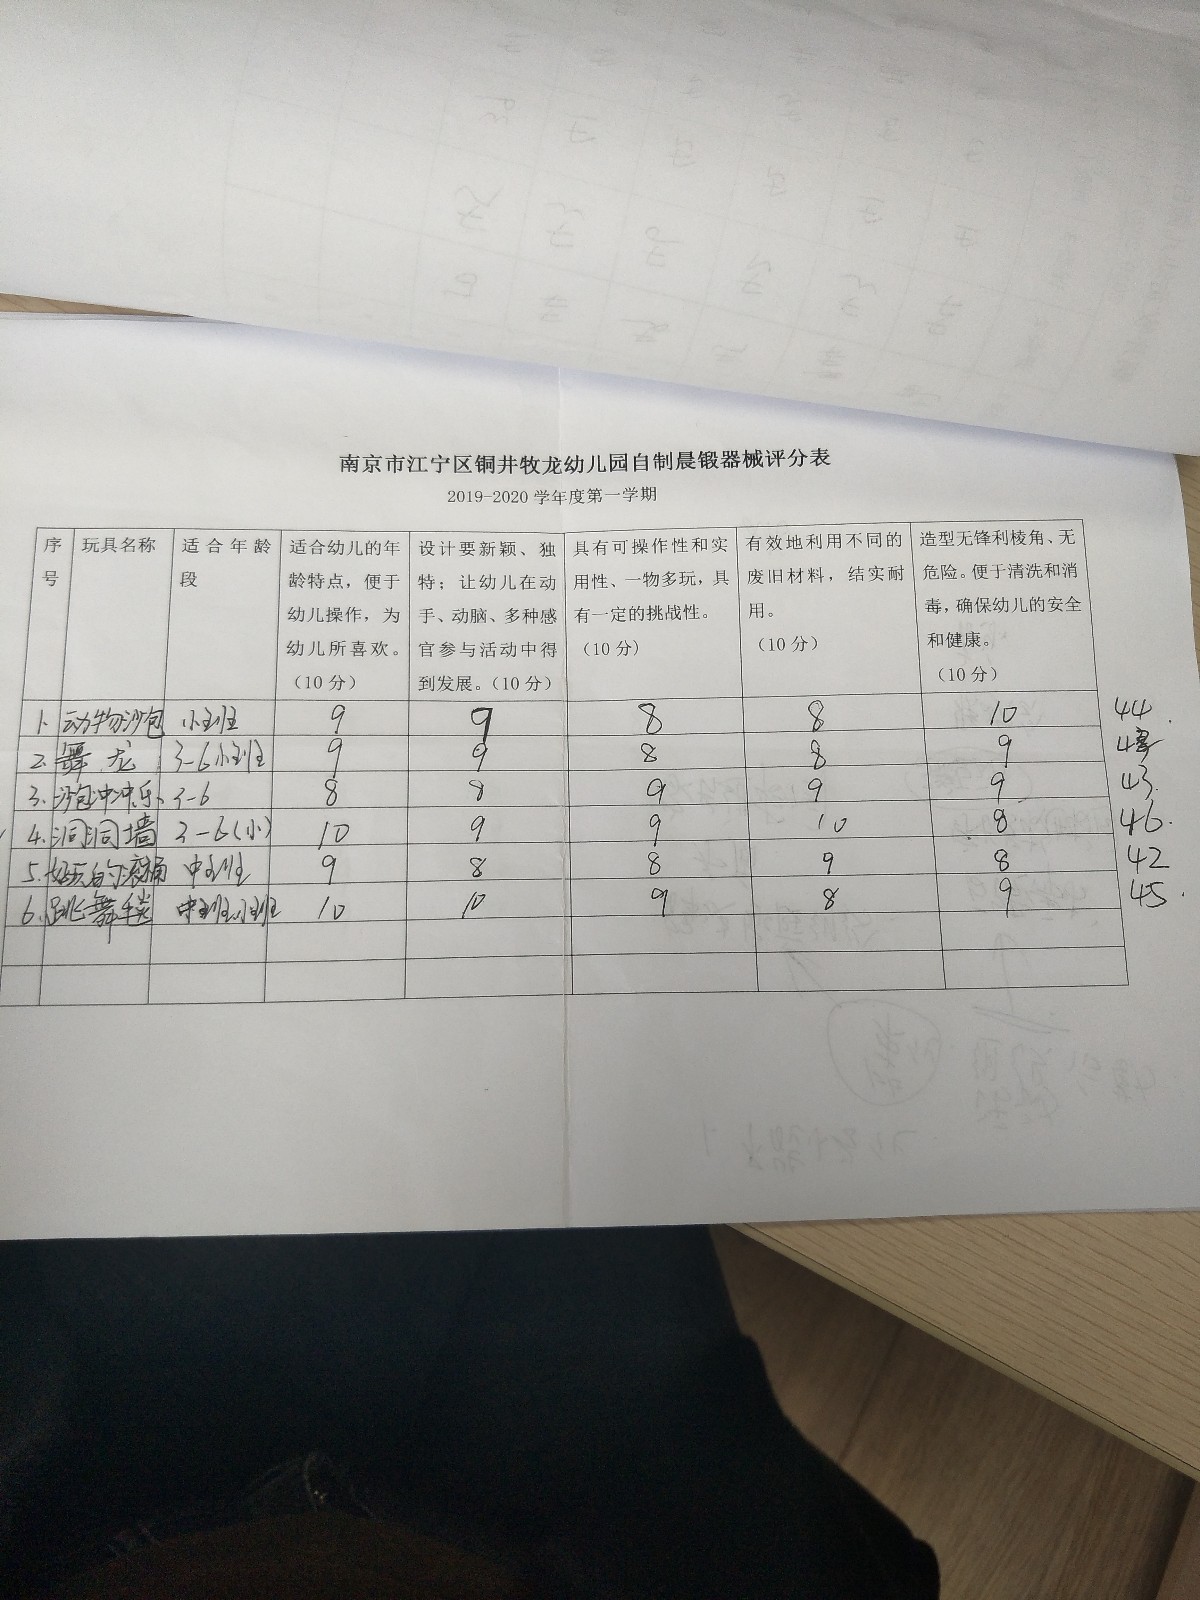 南京市江宁区铜井牧龙幼儿园自制晨锻器械评分表
2019-2020 学年度第一学期
序号 玩具名称 适合年龄段 适合幼儿的年龄特点，便于幼儿操作，为幼儿所喜欢。（10 分） 设计要新颖、独特；让幼儿在动手、动脑、多种感官参与活动中得到发展。（10 分） 具有可操作性和实用性、一物多玩，具有一定的挑战性。（10 分） 有效地利用不同的废旧材料，结实耐用。（10 分） 造型无锋利棱角、无危险。便于清洗和消毒，确保幼儿的安全和健康。（10 分）
1. 动物沙包 小班 9 9 8 8 10 44
2. 舞龙 3-6小班 9 9 8 8 9
3. 沙包冲冲乐 3-6 8 8 9 9 9 43
4. 洞洞墙 3-6(小) 10 9 9 10 8 46
5. 好玩的滚桶 中班 9 8 8 9 8 42
6. 跳舞毯 中班小班 10 10 9 8 9 45